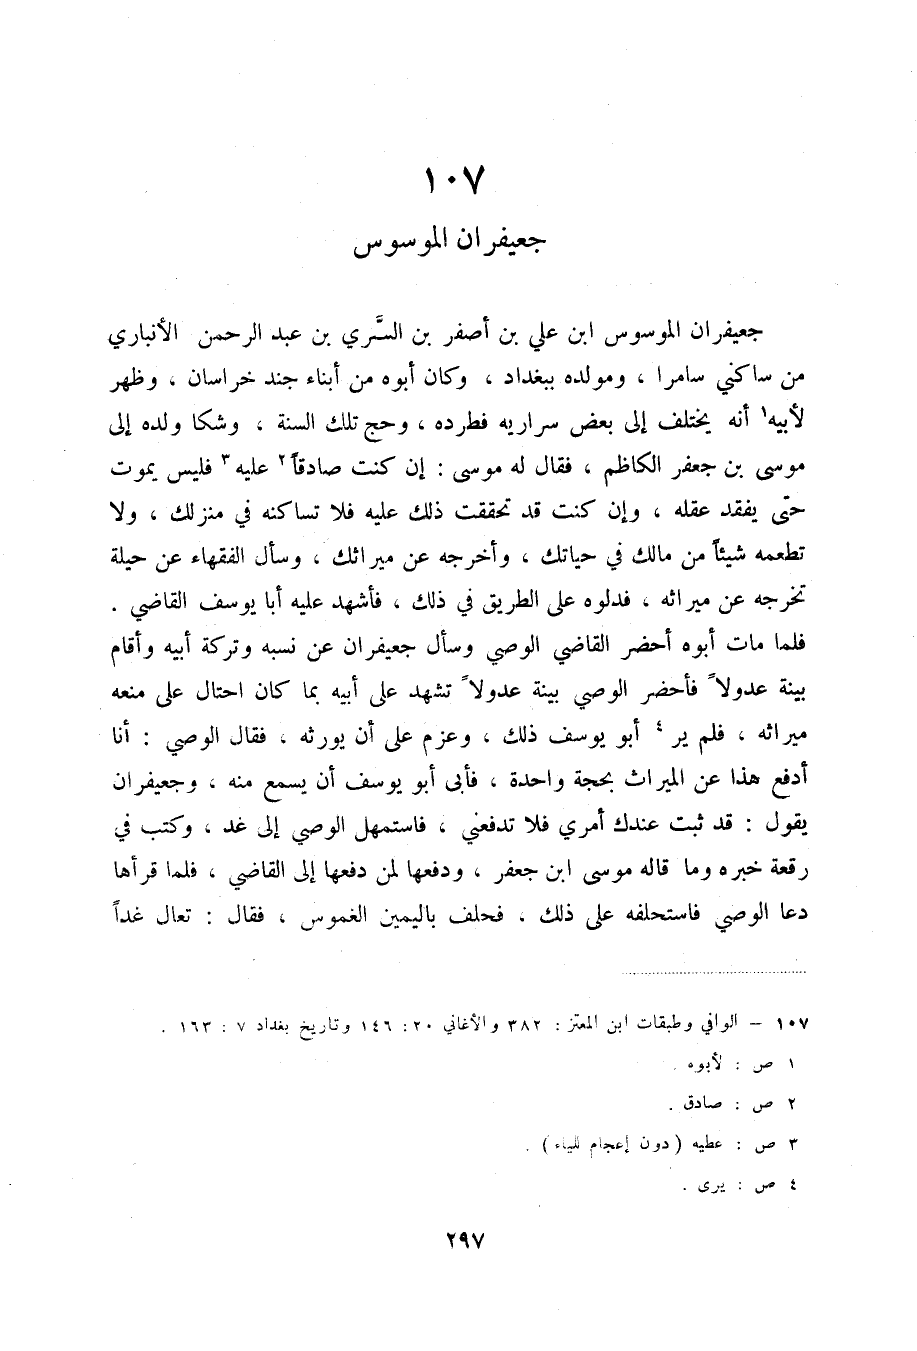 ١٠٧
جعيفران الموسوس
جعيفران الموسوس ابن علي بن أصفر بن السَّري بن عبد الرحمن الأنباري
من ساكني سامرا ، ومولده ببغداد ، وكان أبوه من أبناء جند خراسان ، وظهر
لأبيه١ أنه يختلف إلى بعض سراريه فطرده ، وحج تلك السنة ، وشكا ولده إلى
موسى بن جعفر الكاظم ، فقال له موسى : إن كنت صادقاً٢ عليه٣ فليس يموت
حتى يفقد عقله ، وإن كنت قد تحققت ذلك عليه فلا تساكنه في منزلك ، ولا
تطعمه شيئاً من مالك في حياتك ، وأخرجه عن ميراثك ، وسأل الفقهاء عن حيلة
تخرجه عن ميراثه ، فدلوه على الطريق في ذلك ، فأشهد عليه أبا يوسف القاضي .
فلما مات أبوه أحضر القاضي الوصي وسأل جعيفران عن نسبه وتركة أبيه وأقام
بينة عدولاً فأحضر الوصي بينة عدولاً تشهد على أبيه بما كان احتال على منعه
ميراثه ، فلم ير٤ أبو يوسف ذلك ، وعزم على أن يورثه ، فقال الوصي : أنا
أدفع هذا عن الميراث بحجة واحدة ، فأبى أبو يوسف أن يسمع منه ، وجعيفران
يقول : قد ثبت عندك أمري فلا تدفعني ، فاستمهل الوصي إلى غد ، وكتب في
رقعة خبره وما قاله موسى ابن جعفر ، ودفعها لمن دفعها إلى القاضي ، فلما قرأها
دعا الوصي فاستحلفه على ذلك ، فحلف باليمين الغموس ، فقال : تعال غداً
١٠٧ – الوافي وطبقات ابن المعتز : ٣٨٢ والأغاني ٢٠ : ١٤٦ وتاريخ بغداد ٧ : ١٦٣ .
١ ص : لأبوه .
٢ ص : صادق .
٣ ص : عطيه (دون إعجام للياء) .
٤ ص : يرى .
٢٩٧